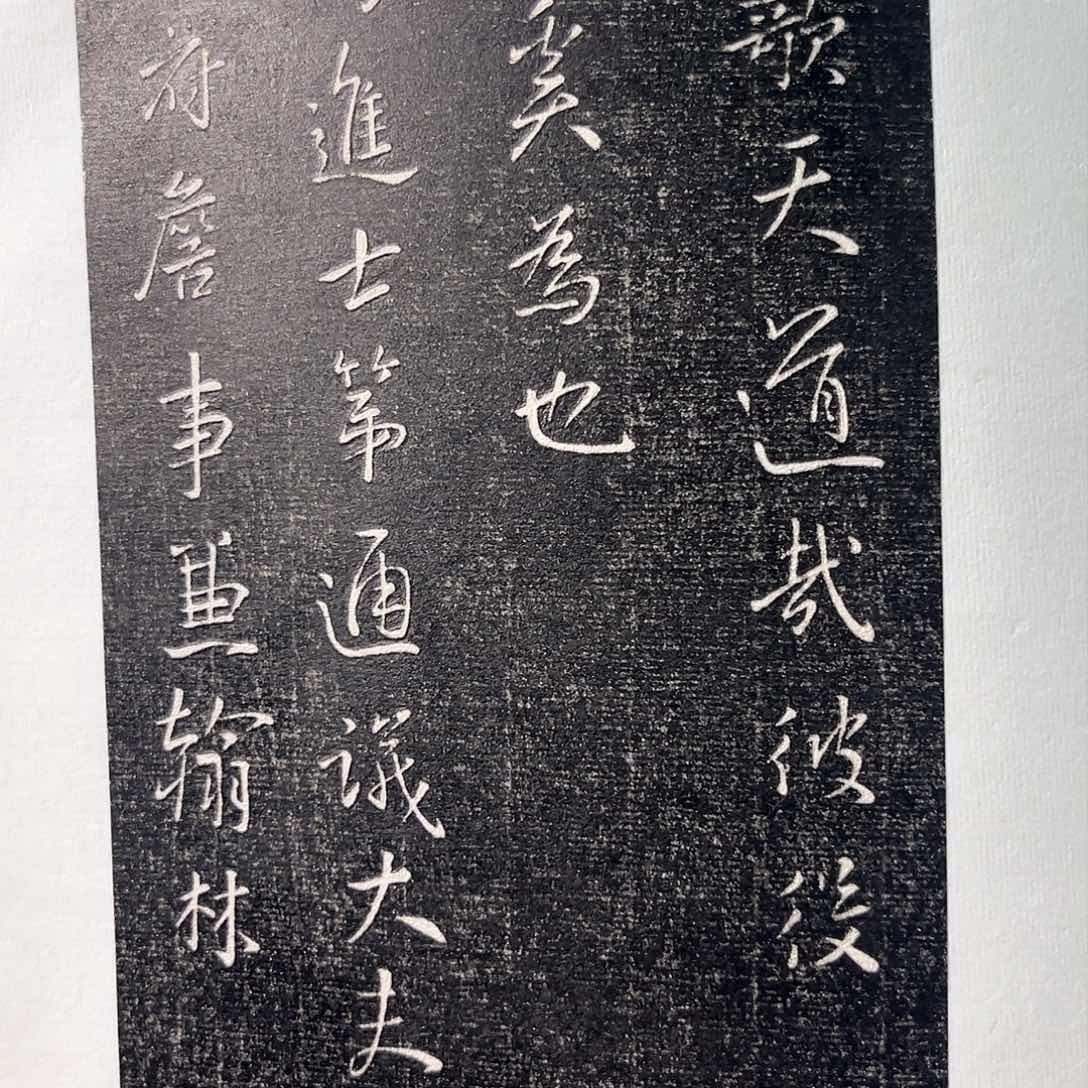 歌天道哉彼役
奚為也
進士第通議大夫
府詹事兼翰林